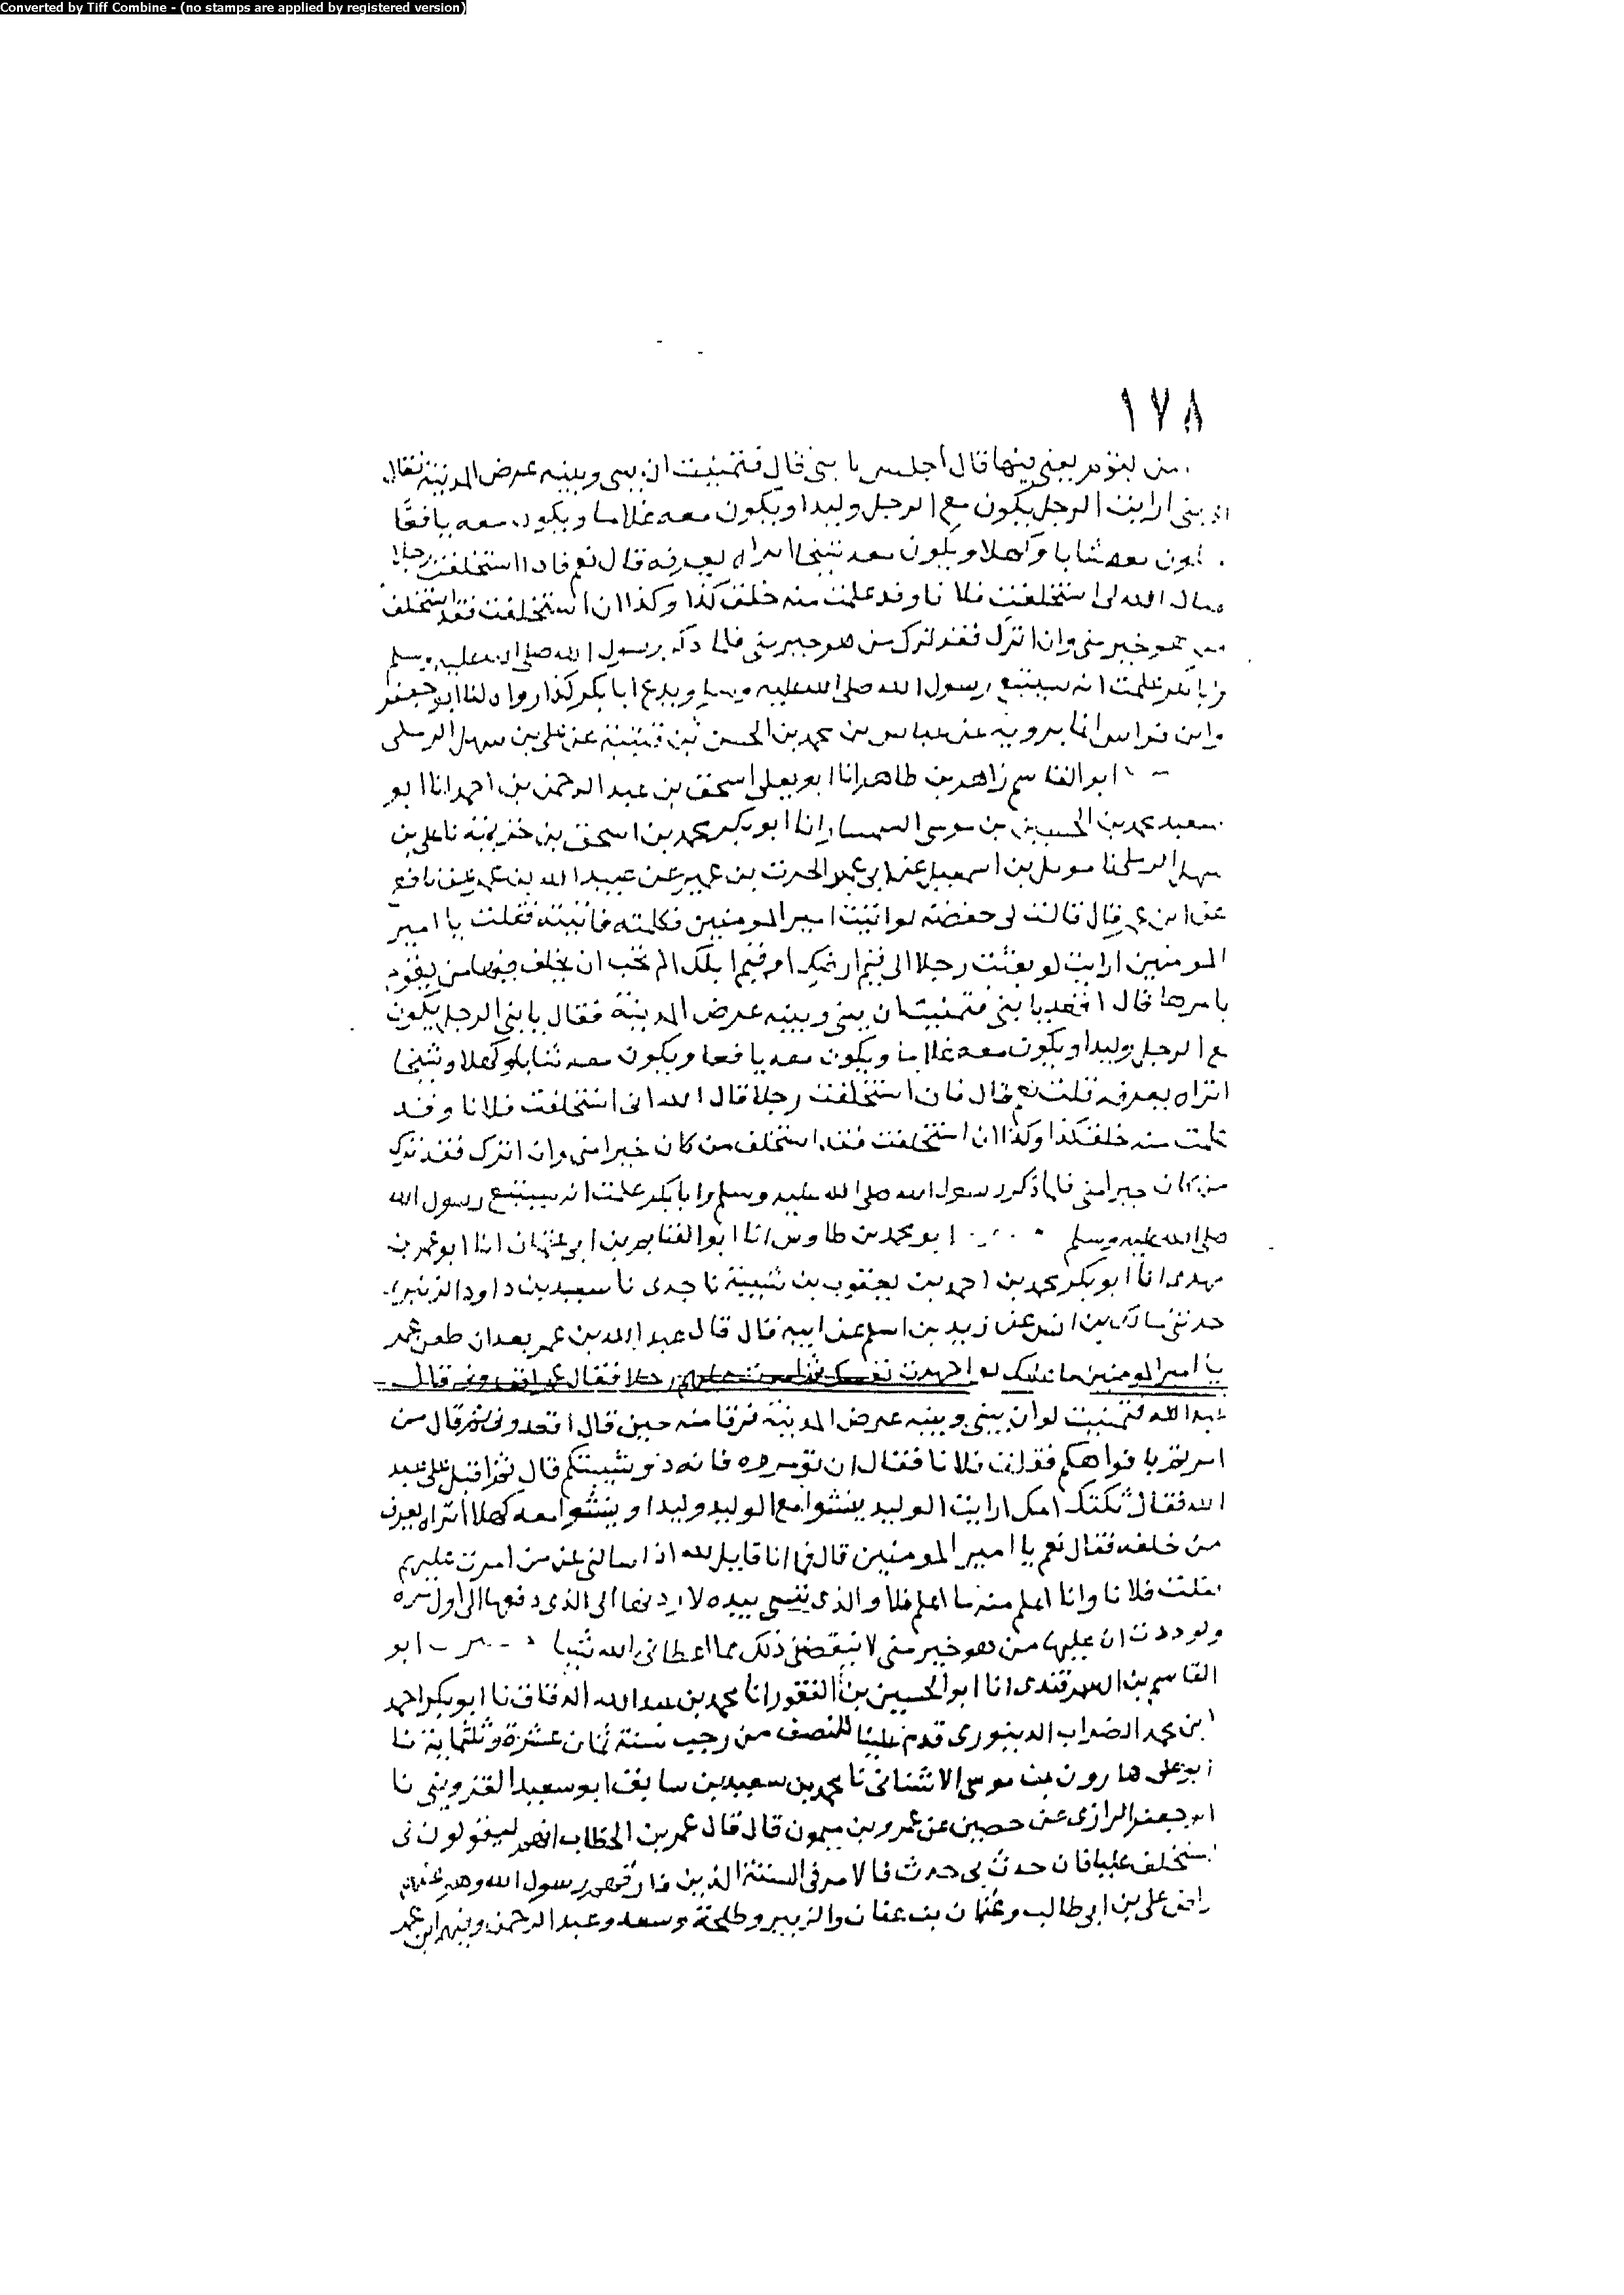 Converted by Tiff Combine - (no stamps are applied by registered version)
١٧٨
من يقوم يعني فيها قال اجلس يا بني قال فتمنيت ان بيني وبينه عرض المدينة فقال
بني ارايت الرجل يكون مع الرجل وليدا ويكون معه غلاما ويكون معه يافعا
معه شابا وكهلا ويكون معه شيخا اتراه يعرفه قال نعم فاذا استخلفت رجلا
الله لي استخلفت فلانا وقد علمت منه خلف كذا وكذا ان استخلفت فقد استخلف
من هو خير مني وان اترك فقد ترك من هو خير مني فلما ذكر رسول الله صلى الله عليه وسلم
وابا بكر علمت انه سيتبع رسول الله صلى الله عليه وسلم ويدع ابا بكر كذا رواه لنا ابو جعفر
وابن فراس انما يرويه عن عباس بن محمد بن الحسن بن قتيبة عن علي بن سهل الرملي
ابو القاسم زاهر بن طاهر انا ابو يعلى اسحق بن عبد الرحمن بن احمد انا ابو
سعيد محمد بن الحسين بن موسى السمسار انا ابو بكر محمد بن اسحق بن خزيمة نا علي بن
سهل الرملي نا مومل بن اسمعيل عن الحرث بن عمير عن عبيد الله بن عمر عن نافع
عن ابن عمر قال قالت لي حفصة لو اتيت امير المومنين فكلمته فاتيته فقلت يا امير
المومنين ارايت لو بعثت رجلا الى قيم ارضك او قيم ابلك الم تحب ان يخلف فيها من يقوم
بامرها قال اقعد يا بني فتمنيت ان بيني وبينه عرض المدينة فقال يا بني الرجل يكون
مع الرجل وليدا ويكون معه غلاما ويكون معه يافعا ويكون معه شابا وكهلا وشيخا
اتراه يعرفه قلت نعم قال فان استخلفت رجلا قال الله اني استخلفت فلانا وقد
علمت منه خلف كذا وكذا ان استخلفت فقد استخلف من كان خيرا مني وان اترك فقد ترك
من كان خيرا مني فلما ذكر رسول الله صلى الله عليه وسلم وابا بكر علمت انه سيتبع رسول الله
صلى الله عليه وسلم ابو محمد بن طاوس انا ابو الغنايم بن ابي عثمان انا ابو عمر بن
مهدي انا ابو بكر محمد بن احمد بن يعقوب بن شيبة نا جدي نا سعيد بن داود الزنبري
حدثني مالك بن انس عن زيد بن اسلم عن ابيه قال قال عبد الله بن عمر بعد ان طعن عمر
يا امير المومنين ما عليك لو اجهدت نفسك ثم امرت عليهم رجلا فقال عمر اقعدوني قال
عبد الله فتمنيت لو ان بيني وبينه عرض المدينة فرقا منه حين قال اقعدوني ثم قال من
امرتم بافواهكم فقلت فلانا فقال ان تومروه فانه ذو شيبتكم قال ثم اقبل على عبد
الله فقال ثكلتك امك ارايت الوليد ينشوا مع الوليد وليدا وينشوا معه كهلا اتراه يعرف
من خلفه فقال نعم يا امير المومنين قال فما انا قايل لله اذا سالني عن من امرت عليهم
فقلت فلانا وانا اعلم منه ما اعلم فلا والذي نفسي بيده لا اردنها الى الذي دفعها الي اول مرة
ولوددت ان عليها من هو خير مني لا ينقصني ذلك مما اعطاني الله شيا ابو
القاسم بن السمرقندي انا ابو الحسين بن النقور انا محمد بن عبد الله الدقاق نا ابو بكر احمد
ابن محمد الضراب الدينوري قدم علينا للنصف من رجب سنة ثمان عشرة وثلثماية نا
ابو علي هارون بن موسى الاشناني نا محمد بن سعيد بن سابق ابو سعيد القزويني نا
ابو جعفر الرازي عن حصين عن عمرو بن ميمون قال قال عمر بن الخطاب انهم ليقولون لي
استخلف علينا فان حدث بي حدث فالامر في الستة الذين فارقهم رسول الله وهو عنهم
راض علي بن ابي طالب وعثمان بن عفان والزبير وطلحة وسعد وعبد الرحمن ابن عمر